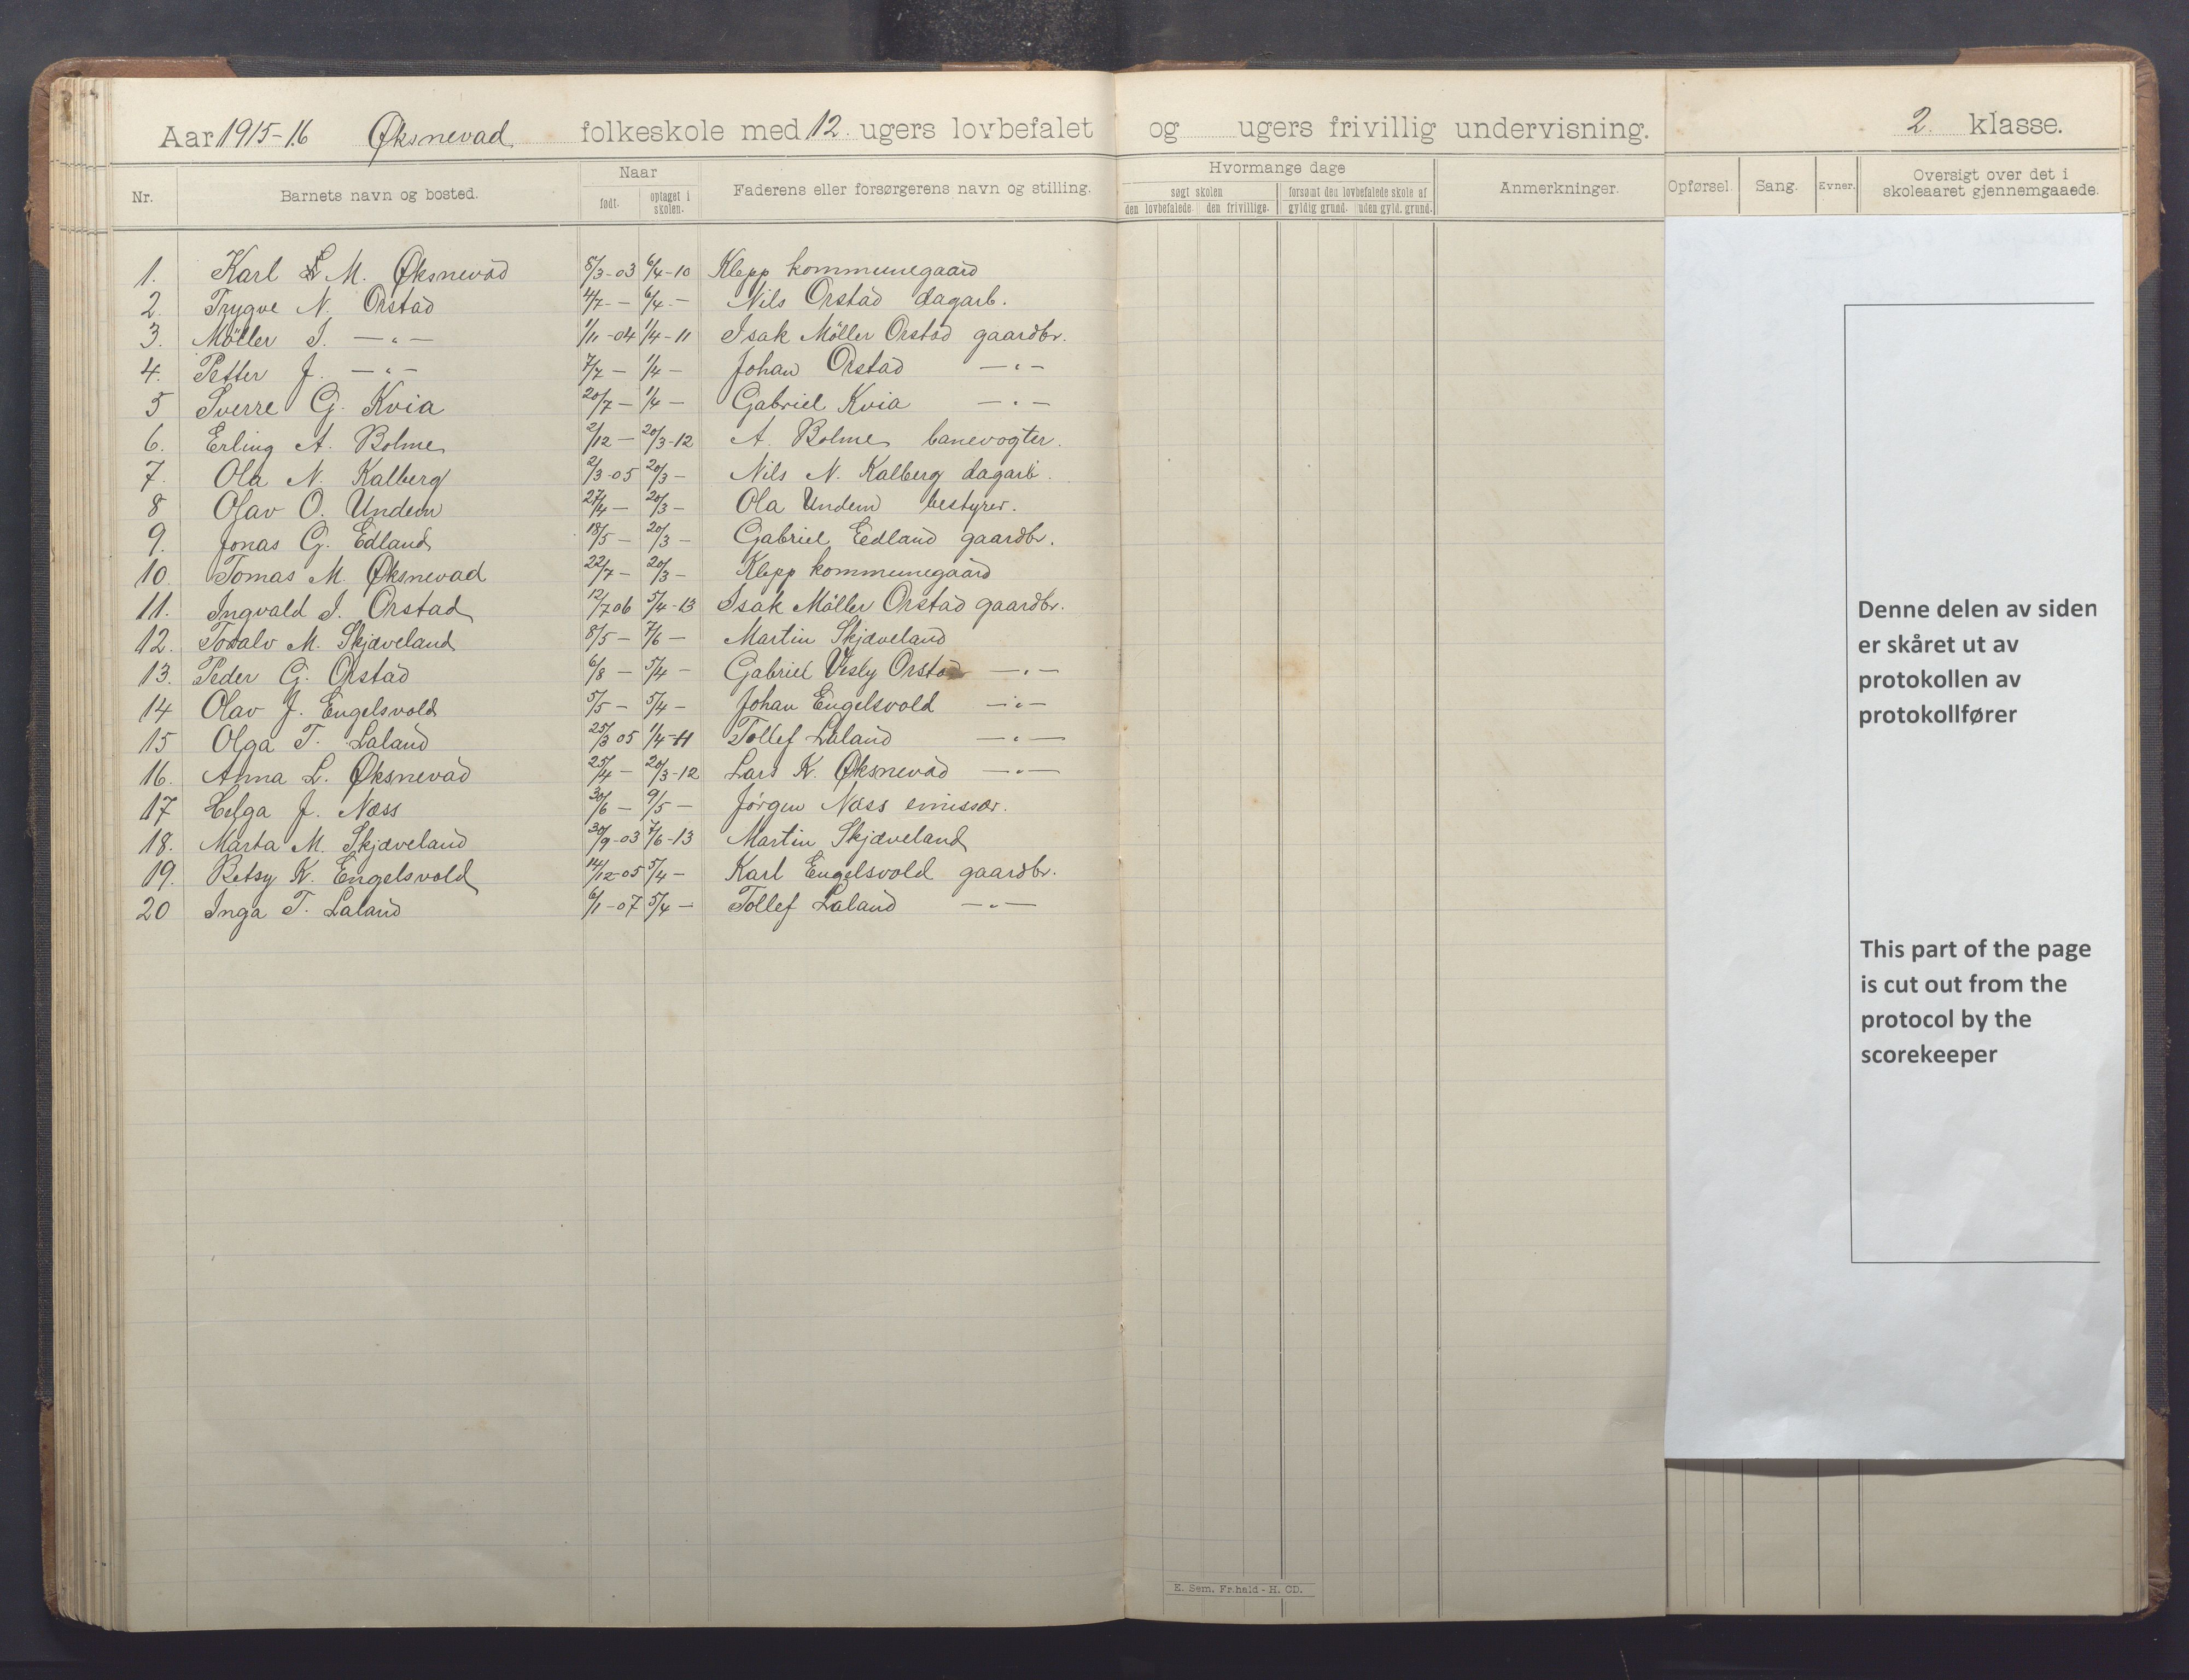 Aar 1915-16 Øksnevad folkeskole med 12. ugers lovbefalet og ugers frivillig undervisning. 2. klasse.
Nr. Barnets navn og bosted. Naar født. optaget i skolen. Faderens eller forsørgerens navn og stilling. Hvormange dage søgt skolen den lovbefalede. den frivillige. forsømt den lovbefalede skole af gyldig grund. uden gyld. grund. Anmerkninger. Opførsel. Sang. Evner. Oversigt over det i skoleaaret gjennemgaaede.
1. Karl M. Øksnevad 8/3-03 6/4-10 Klepp kommunegaard
2. Trygve N. Orstad 4/7 - 6/4 - Nils Orstad dagarb.
3. Møller I. —„— 1/11-04 1/4-11 Isak Møller Orstad gaardbr.
4. Petter J. —„— 7/7 - 1/4 - Johan Orstad —„—
5 Sverre G. Kvia 20/7 - 1/4 - Gabriel Kvia —„—
6. Erling A. Bolme 2/12 - 20/3-12 A. Bolme banevogter.
7. Ola N. Kalberg 2/3-05 20/3 - Nils N. Kalberg dagarb.
8 Olav O. Undem 27/4 - 20/3 - Ola Undem bestyrer.
9. Jonas G. Edland 18/5 - 20/3 - Gabriel Eedland gaardbr.
10. Tomas M. Øksnevad 22/7 - 20/3 - Klepp kommunegaard
11. Ingvald I. Orstad 12/7 06 5/4-13 Isak Møller Orstad gaardbr.
12. Todalv M. Skjæveland 8/5 - 7/6 - Martin Skjæveland
13. Peder G. Orstad 6/8 - 5/4 - Gabriel Vesly Orstad —„—
14 Olav J. Engelsvold 5/5 - 5/4 - Johan Engelsvold —„—
15 Olga T. Laland 25/3 05 1/4-11 Tollef Laland —„—
16. Anna L. Øksnevad 25/4 - 20/3-12 Lars K. Øksnevad —„—
17 Helga J. Næss 30/6 - 9/5 - Jørgen Næss emissær.
18. Marta M. Skjæveland 30/9-03 7/6-13 Martin Skjæveland
19. Betsy K. Engelsvold 14/12-05 5/4 - Karl Engelsvold gaardbr.
20 Inga T. Laland 6/1-07 5/4 - Tollef Laland —„—
Denne delen av siden
er skåret ut av
protokollen av
protokollfører
This part of the page
is cut out from the
protocol by the
scorekeeper
E. Sem, Fr.hald - H. CD.